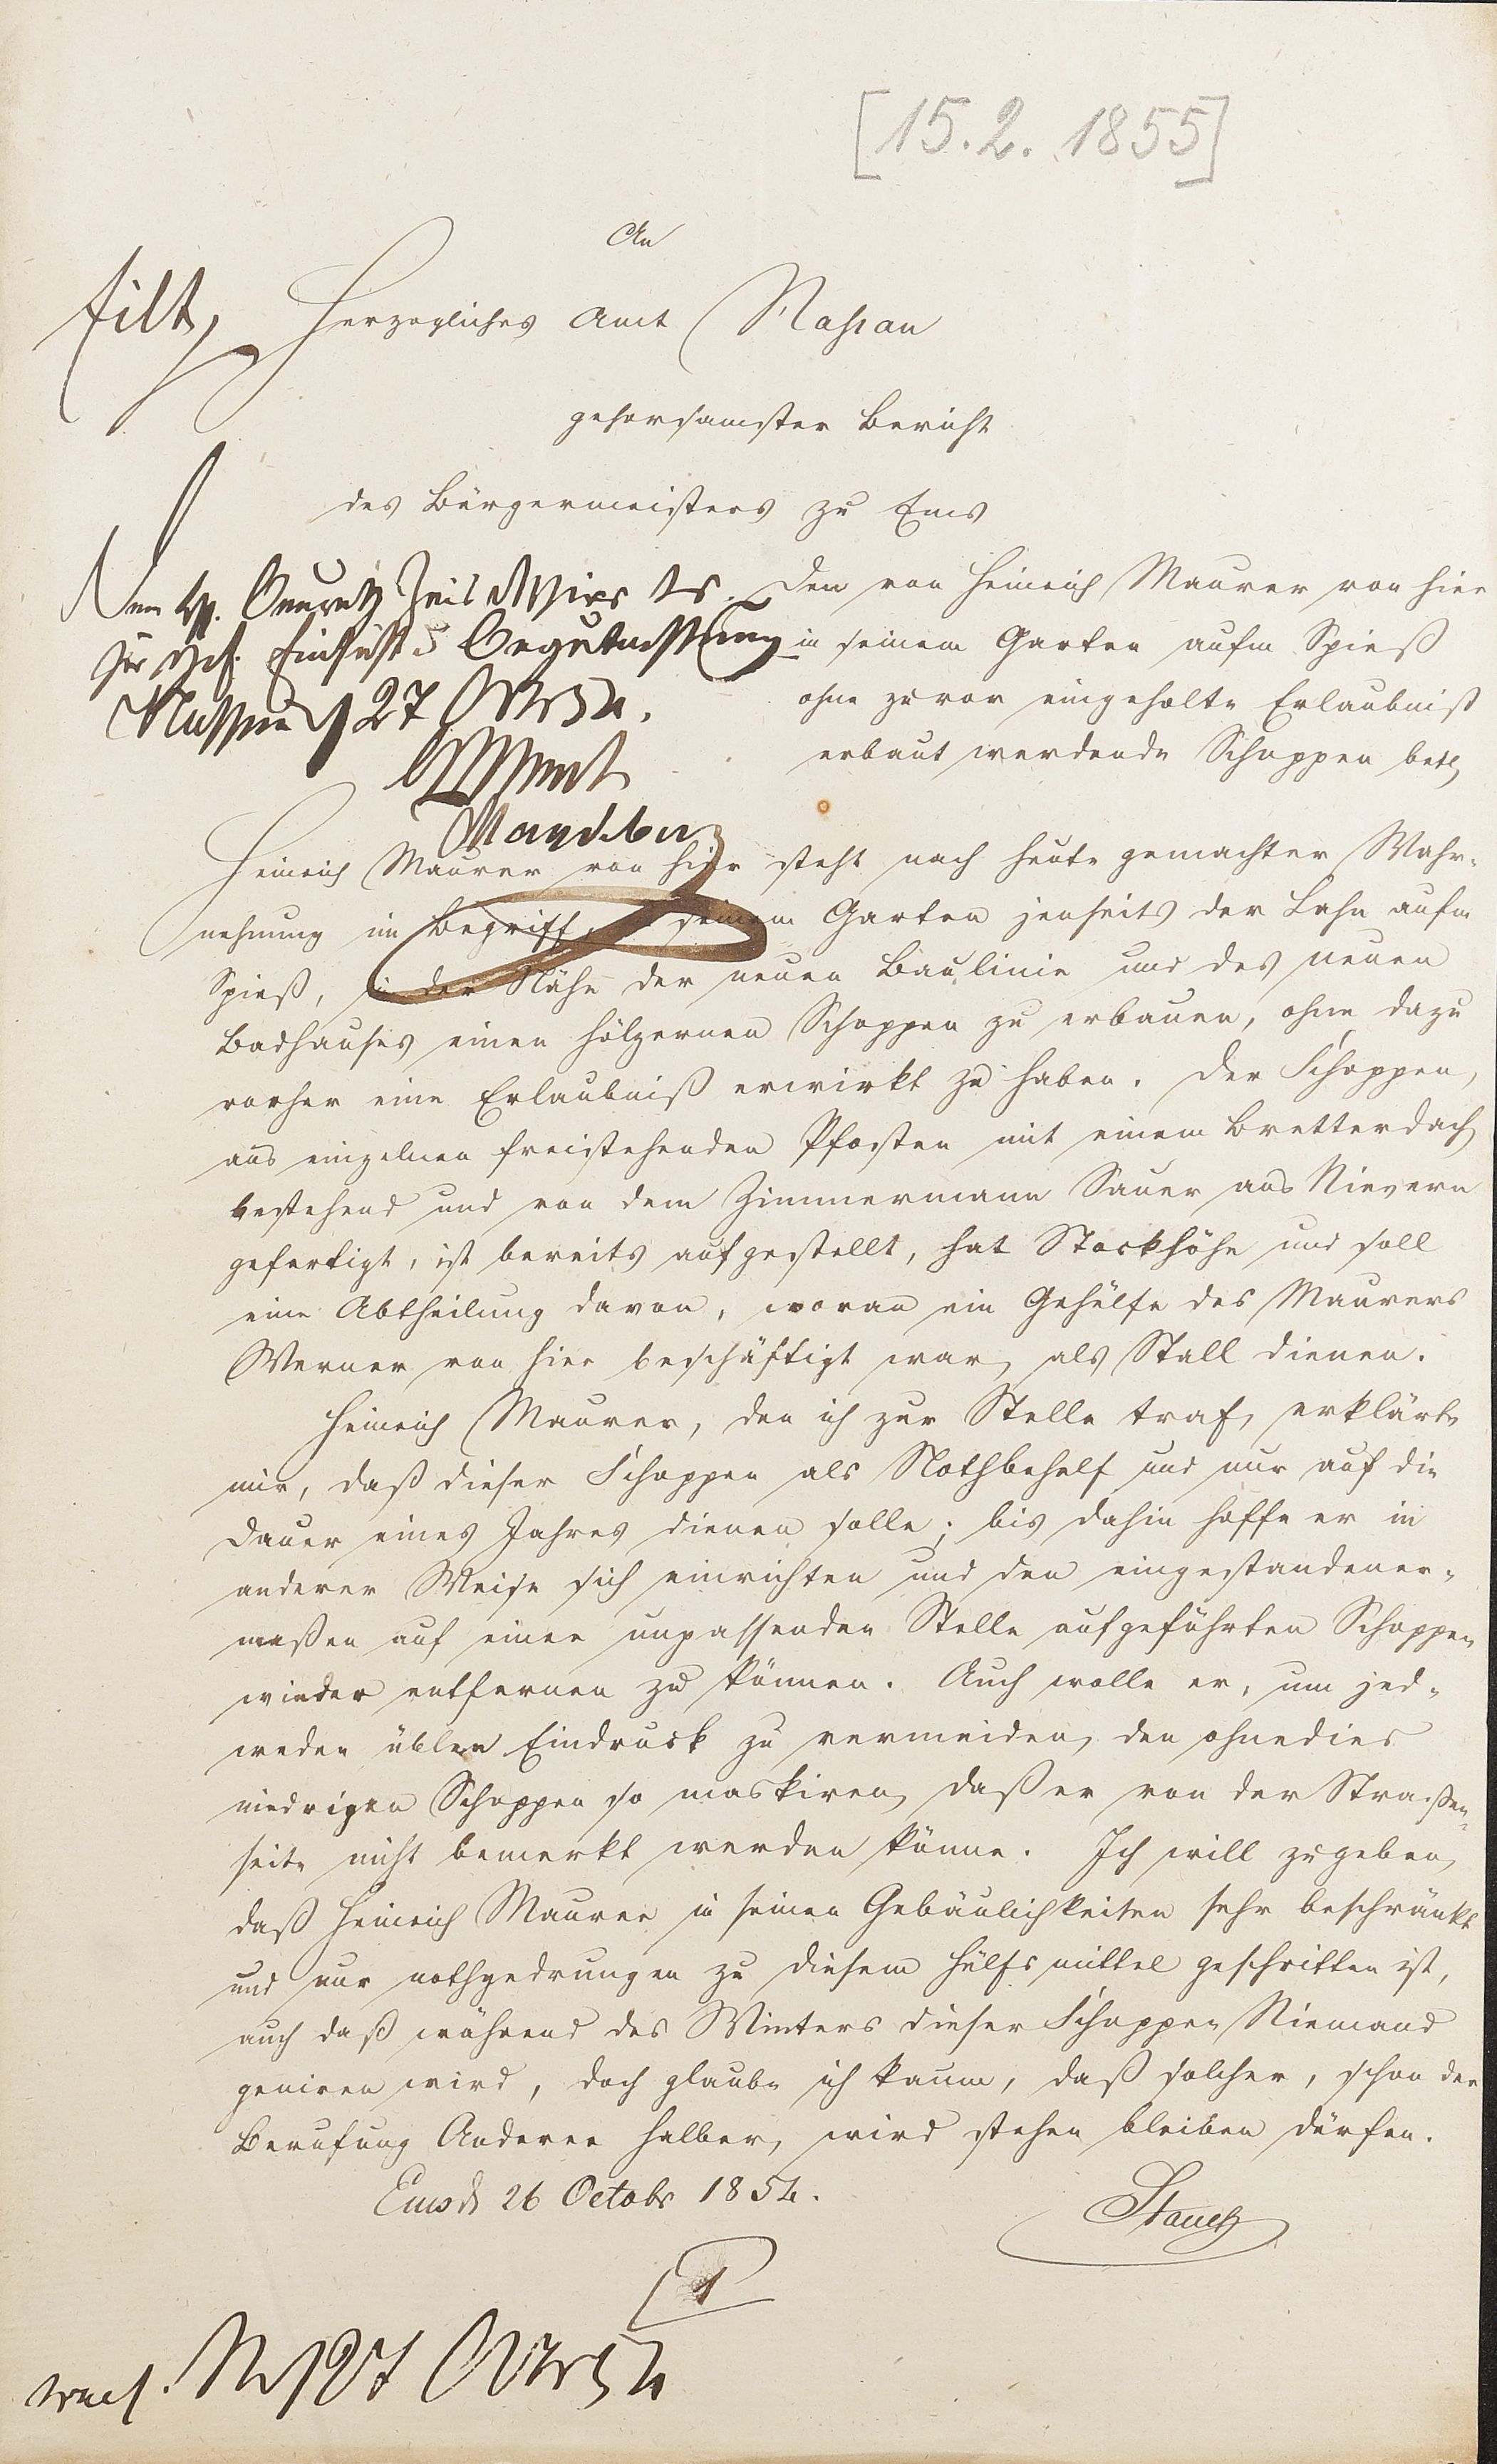 [15.2.1855]
An
Eilt, Herzogliches Amt Nassau
gehorsamster Bericht
des Bürgermeisters zu Ems
Den von Heinrich Maurer von hier
in seinem Garten aufm Spieß
ohne zuvor eingeholte Erlaubniß
erbaut werdende Schoppen betr.
zur gef. Einsicht & Begutachtung
Nassau d 27 Octbr 54.
Heinrich Maurer von hier steht nach heute gemachter Wahr-
nehmung im Begriff, in seinem Garten jenseits der Lahn aufm
Spieß, in der Nähe der neuen Baulinie und des neuen
Badhauses einen hölzernen Schoppen zu erbauen, ohne dazu
vorher eine Erlaubniß erwirkt zu haben. Der Schoppen,
aus einzelnen freistehenden Pfosten mit einem Bretterdach
bestehend und von dem Zimmermann Sauer aus Nievern
gefertigt, ist bereits aufgestellt, hat Stockhöhe und soll
eine Abtheilung davon, woran ein Gehülfe des Maurers
Werner von hier beschäftigt war, als Stall dienen.
Heinrich Maurer, den ich zur Stelle traf, erklärte
mir, daß dieser Schoppen als Nothbehelf und nur auf die
Dauer eines Jahres dienen solle; bis dahin hoffe er in
anderer Weise sich einrichten und den eingestandener-
maßen auf einer unpassenden Stelle aufgeführten Schoppen
wieder entfernen zu können. Auch wolle er, um jed-
weden üblen Eindruck zu vermeiden, den ohnedies
niedrigen Schoppen so maskiren, daß er von der Straßen-
seite nicht bemerkt werden könne. Ich will zugeben,
daß Heinrich Maurer in seinen Gebäulichkeiten sehr beschränkt
und nur nothgedrungen zu diesem Hülfsmittel geschritten ist,
auch daß während des Winters dieser Schoppen Niemand
geniren wird, doch glaube ich kaum, daß solcher, schon der
Berufung Anderer halber, wird stehen bleiben dürfen.
Ems d 26 Octobr 1854.
Stauch
1